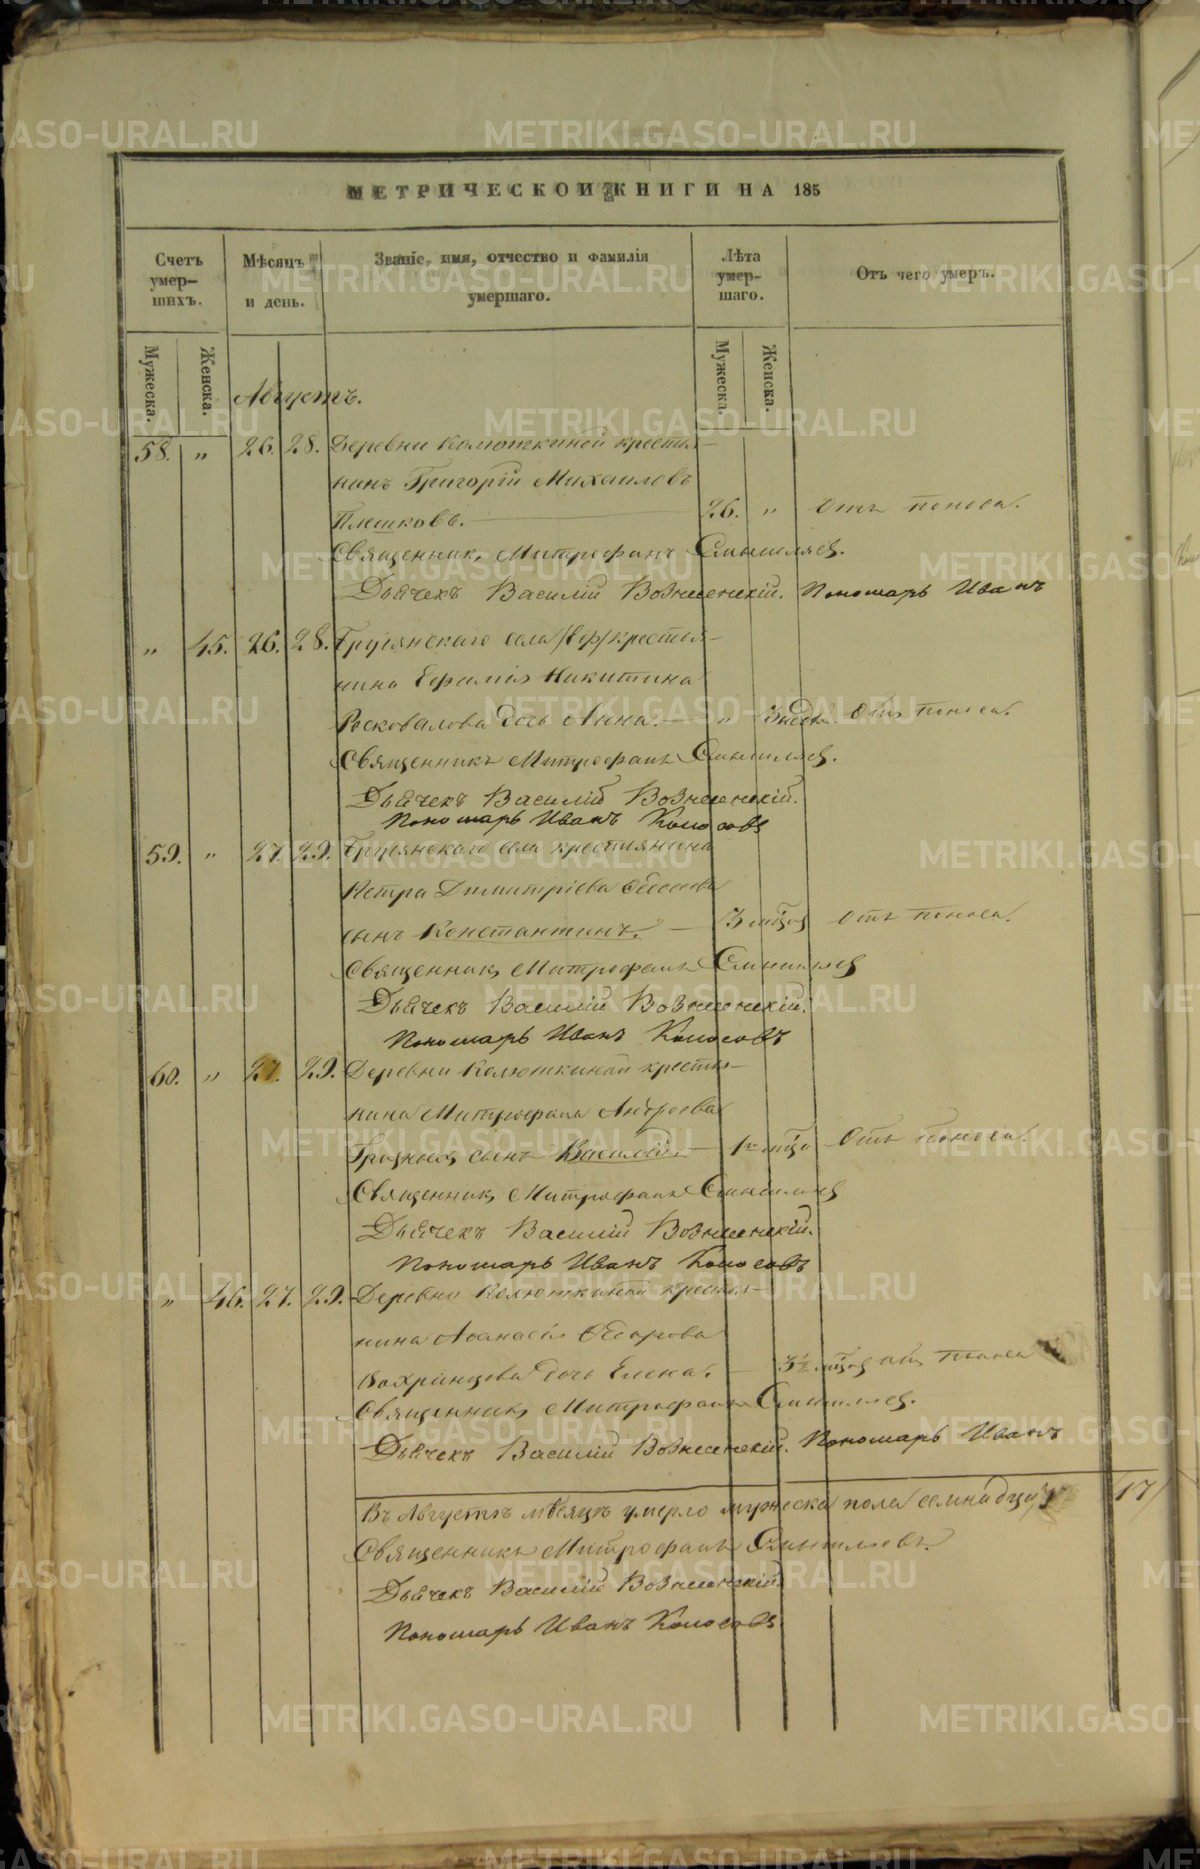 МЕТРИЧЕСКОЙ КНИГИ НА 185
Счетъ умер-шихъ.
Мѣсяцъ и день.
Званіе, имя, отчество и фамилія умершаго.
Лѣта умер-шаго.
Отъ чего умеръ.
Мужеска.
Женска.
Мужеска.
Женска.
Августъ.
58. " 26. 28. Деревни Колюткиной крестья-
нинъ Григорій Михаиловъ
Плешковъ. — 26. " Отъ поноса.
Священникъ Митрофанъ
Дьячекъ Василій Вознесенскій. Пономарь Иванъ
" 45. 26. 28. села крестья-
нина Ефимія Никитина
дочь Анна. — " 3 Отъ поноса.
Священникъ Митрофанъ
Дьячекъ Василій Вознесенскій.
Пономарь Иванъ Колосовъ
59. " 27. 29. села крестьянина
Петра Димитріева
сынъ Константинъ. — 3 Отъ поноса.
Священникъ Митрофанъ
Дьячекъ Василій Вознесенскій.
Пономарь Иванъ Колосовъ
60. " 27. 29. Деревни Колюткиной крестья-
нина Митрофана Андреева
сынъ Василій. — 1 Отъ поноса.
Священникъ Митрофанъ
Дьячекъ Василій Вознесенскій.
Пономарь Иванъ Колосовъ
" 46. 27. 29. Деревни Колюткиной крестья-
нина Аѳанасія
дочь Елена. — Отъ поноса
Священникъ Митрофанъ
Дьячекъ Василій Вознесенскій. Пономарь Иванъ
Въ Августѣ мѣсяцѣ умерло мужеска пола семнадцать 17
Священникъ Митрофанъ
Дьячекъ Василій Вознесенскій
Пономарь Иванъ Колосовъ
METRIKI.GASO-URAL.RU